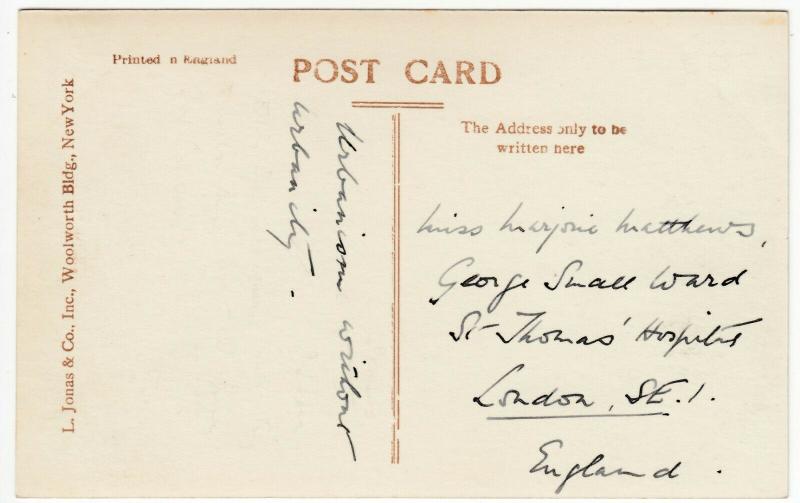 Printed in England
POST CARD
L. Jonas & Co., Inc., Woolworth Bldg., New York
The Address only to be
written here
Urbanism without
urbanity.
Miss Marjorie Matthews,
George Small Ward
St Thomas' Hospital
London, SE.1.
England.